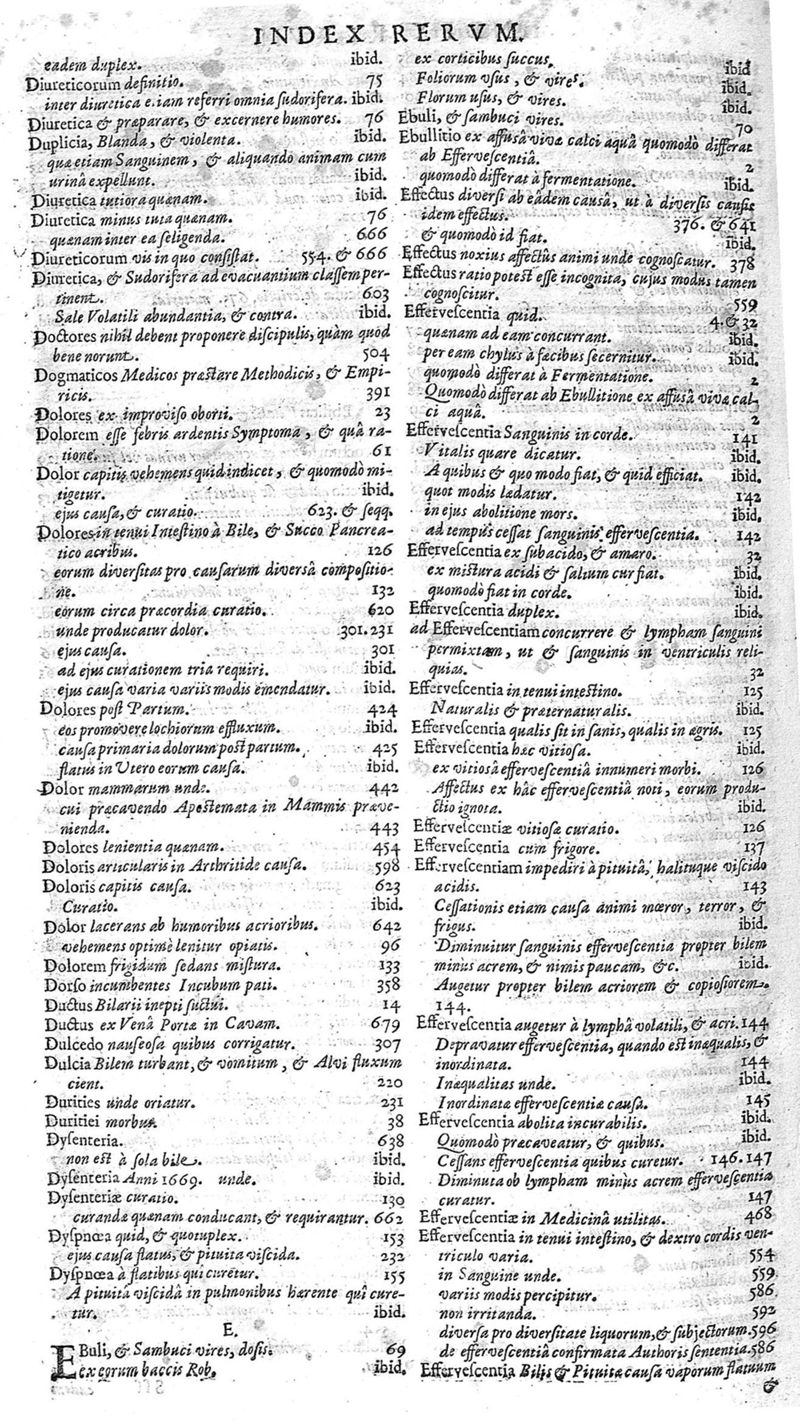 INDEX RERVM.
eadem duplex. ibid.
Diureticorum definitio. 75
inter diuretica etiam referri omnia sudorifera. ibid.
Diuretica & præparare, & excernere humores. 76
Duplicia, Blanda, & violenta. ibid.
quæ etiam Sanguinem, & aliquando animam cum
urinâ expellunt. ibid.
Diuretica tutiora quænam. ibid.
Diuretica minus tuta quænam. 76
quænam inter ea seligenda. 666
Diureticorum vis in quo consistat. 554. & 666
Diuretica, & Sudorifera ad evacuantium classem per-
tinent. 603
Sale Volatili abundantia, & contra. ibid.
Doctores nihil debent proponere discipulis, quàm quod
bene norunt. 504
Dogmaticos Medicos præstare Methodicis, & Empi-
ricis. 391
Dolores ex improviso oborti. 23
Dolorem esse febris ardentis Symptoma, & quâ ra-
tione. 61
Dolor capitis vehemens quid indicet, & quomodò mi-
tigetur. ibid.
ejus causa, & curatio. 623. & seqq.
Dolores in tenui Intestino à Bile, & Succo Pancrea-
tico acribus. 126
eorum diversitas pro causarum diversâ compositio-
ne. 132
eorum circa præcordia curatio. 620
unde producatur dolor. 301.231
ejus causa. 301
ad ejus curationem tria requiri. ibid.
ejus causa varia variis modis emendatur. ibid.
Dolores post Partum. 424
eos promovere lochiorum effluxum. ibid.
causa primaria dolorum post partum. 425
flatus in Utero eorum causa. ibid.
Dolor mammarum unde. 442
cui præcavendo Apostemata in Mammis præve-
nienda. 443
Dolores lenientia quænam. 454
Doloris articularis in Arthritide causa. 598
Doloris capitis causa. 623
Curatio. ibid.
Dolor lacerans ab humoribus acrioribus. 642
vehemens optimè lenitur opiatis. 96
Dolorem frigidum sedans mistura. 133
Dorso incumbentes Incubum pati. 358
Ductus Bilarii inepti suctui. 14
Ductus ex Venâ Portæ in Cavam. 679
Dulcedo nauseosa quibus corrigatur. 307
Dulcia Bilem turbant, & vomitum, & Alvi fluxum
cient. 220
Durities unde oriatur. 231
Duritiei morbus. 38
Dysenteria. 638
non est à sola bile. ibid.
Dysenteria Anni 1669. unde. ibid.
Dysenteriæ curatio. 130
curandæ quænam conducant, & requirantur. 662
Dyspnœa quid, & quotuplex. 153
ejus causa flatus, & pituita viscida. 232
Dyspnœa à flatibus qui curetur. 155
A pituitâ viscidâ in pulmonibus hærente quî cure-
tur. ibid.
E.
EBuli, & Sambuci vires, dosis. 69
ex eorum baccis Rob. ibid.
ex corticibus succus. ibid
Foliorum usus, & vires. ibid.
Florum usus, & vires. ibid.
Ebuli, & sambuci vires. 70
Ebullitio ex affusâ vivæ calci aquâ quomodò differat
ab Effervescentiâ. 2
quomodò differat à fermentatione. ibid.
Effectus diversi ab eâdem causâ, ut à diversis causis
idem effectus. 376. & 641
& quomodò id fiat. ibid.
Effectus noxius affectûs animi unde cognoscatur. 378
Effectus ratio potest esse incognita, cujus modus tamen
cognoscitur. 559
Effervescentia quid. 4. & 32
quænam ad eam concurrant. ibid.
per eam chylus à fæcibus secernitur. ibid.
quomodò differat à Fermentatione. 2
Quomodò differat ab Ebullitione ex affusâ vivæ cal-
ci aquâ. 2
Effervescentia Sanguinis in corde. 141
Vitalis quare dicatur. ibid.
A quibus & quo modo fiat, & quid efficiat. ibid.
quot modis lædatur. 142
in ejus abolitione mors. ibid.
ad tempus cessat sanguinis effervescentia. 142
Effervescentia ex subacido, & amaro. 32
ex mistura acidi & salium cur fiat. ibid.
quomodò fiat in corde. ibid.
Effervescentia duplex. ibid.
ad Effervescentiam concurrere & lympham sanguini
permixtam, ut & sanguinis in ventriculis reli-
quias. 32
Effervescentia in tenui intestino. 125
Naturalis & præternaturalis. ibid.
Effervescentia qualis sit in sanis, qualis in ægris. 125
Effervescentia hæc vitiosa. ibid.
ex vitiosâ effervescentiâ innumeri morbi. 126
Affectus ex hâc effervescentiâ noti, eorum produ-
ctio ignota. ibid.
Effervescentiæ vitiosæ curatio. 126
Effervescentia cum frigore. 137
Effervescentiam impediri à pituitâ, halituque viscido
acidis. 143
Cessationis etiam causa animi mœror, terror, &
frigus. ibid.
Diminuitur sanguinis effervescentia propter bilem
minus acrem, & nimis paucam, &c. ibid.
Augetur propter bilem acriorem & copiosiorem.
144.
Effervescentia augetur à lymphâ volatili, & acri. 144
Depravatur effervescentia, quando est inæqualis, &
inordinata. 144
Inæqualitas unde. ibid.
Inordinatæ effervescentiæ causa. 145
Effervescentia abolita incurabilis. ibid.
Quomodò præcaveatur, & quibus. ibid.
Cessans effervescentia quibus curetur. 146.147
Diminuta ob lympham minus acrem effervescentia
curatur. 147
Effervescentiæ in Medicinâ utilitas. 468
Effervescentia in tenui intestino, & dextro cordis ven-
triculo varia. 554
in Sanguine unde. 559
variis modis percipitur. 586
non irritanda. 592
diversa pro diversitate liquorum, & subjectorum. 596
de effervescentiâ confirmata Authoris sententia. 586
Effervescentia Bilis & Pituitæ causa vaporum flatuum
&